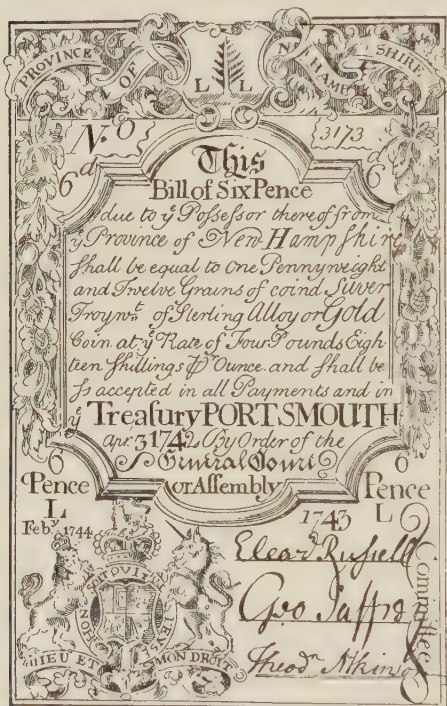 PROVINCE OF NEW HAMPSHIRE
L L
No 3173
6d 6d
This
Bill of Six Pence
due to ye Poſseſsor thereof from
ye Province of New Hampſhire
ſhall be equal to One Pennyweight
and Twelve Grains of coind Silver
Troywt. of Sterling Alloy or Gold
Coin at ye Rate of Four Pounds Eigh
teen Shillings ⅌r Ounce. and ſhall be
ſo accepted in all Payments and in
ye Treaſury PORTSMOUTH
Apr. 3 1742 By Order of the
General Court
or Aſsembly
6 6
Pence Pence
L L
Feby. 1744 1743
Eleazr. Ruſsell
Geo Jaffrey
Theodr. Atkinson
Committee
HONI SOIT
DIEU ET MON DROIT